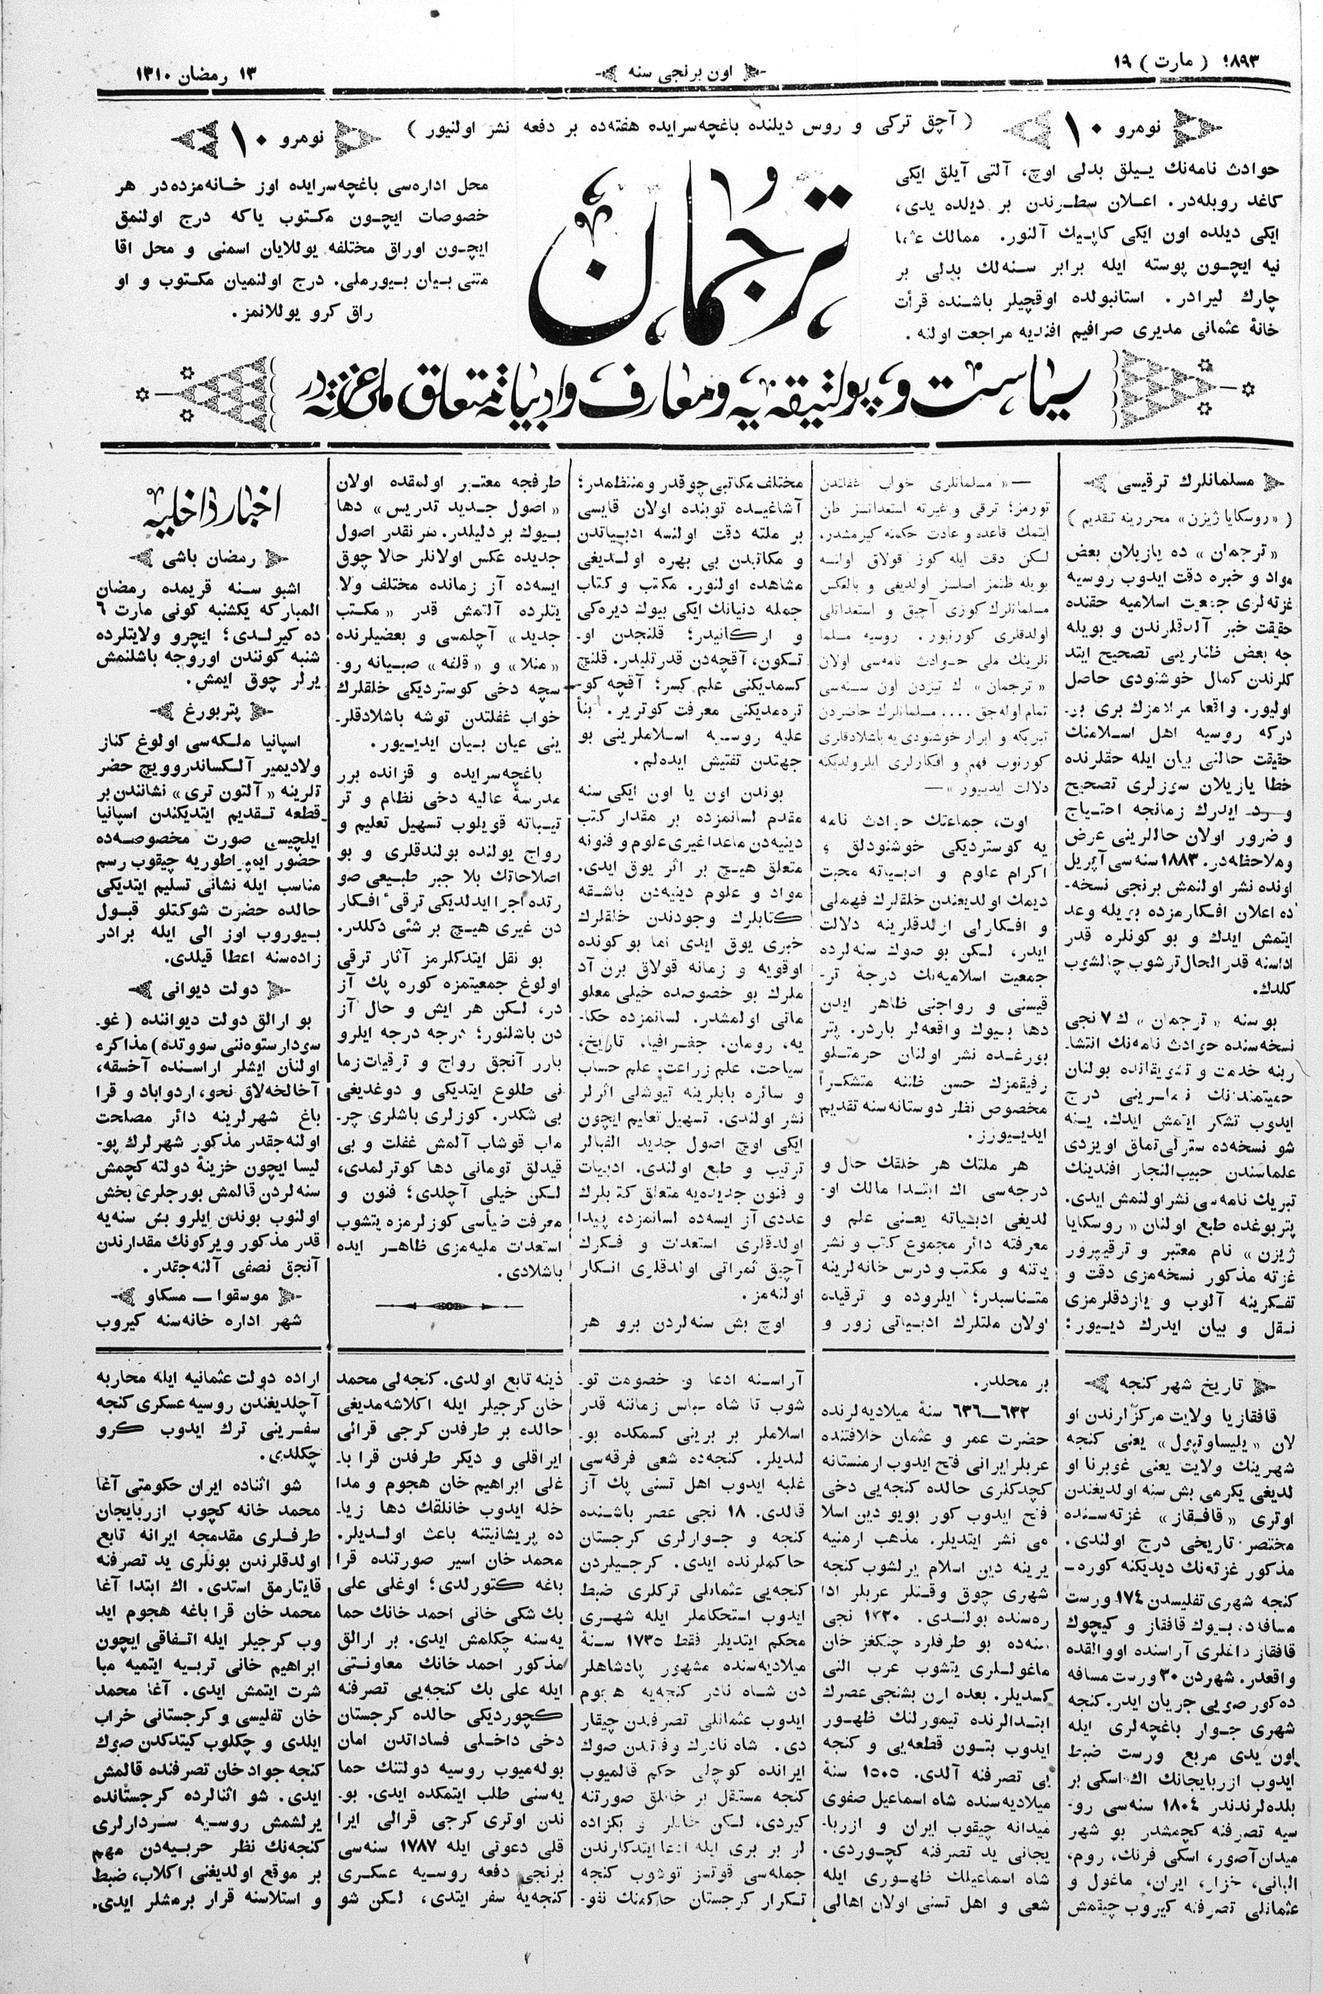 ۱۸۹۳ ( مارت ) ۱۹
اون برنجی سنه
۱۳ رمضان ۱۳۱۰
نومرو ۱۰
( آچق ترکی و روس دیلنده باغچه‌سرایده هفته‌ده بر دفعه نشر اولنیور )
نومرو ۱۰
حوادث نامه‌نك ییلق بدلی اوچ، آلتی آیلق ایکی
کاغد روبله‌در. اعلان سطرندن بر دیلده یدی،
ایکی دیلده اون ایکی کاپیك آلنور. ممالك عثما
نیه ایچون پوسته ایله برابر سنه‌لك بدلی بر
چارك لیرادر. استانبولده اوقچیلر باشنده قرأت
خانهٔ عثمانی مدیری صرافیم افندیه مراجعت اولنه.
ترجمان
محل اداره‌سی باغچه‌سرایده اوز خانه‌مزده‌در هر
خصوصات ایچون مکتوب یاکه درج اولنمق
ایچون اوراق مختلفه یوللایان اسمنی و محل اقا
متنی بیان بیورملی. درج اولنمیان مکتوب و او
راق کرو یوللانمز.
سیاست و پولتیقه‌یه و معارف و ادبیاته متعلق ملی غزته‌در
مسلمانلرك ترقیسی
( «روسکایا ژیزن» محررینه تقدیم )
«ترجمان» ده یازیلان بعض
مواد و خبره دقت ایدوب روسیه
غزته‌لری جمعت اسلامیه حقنده
حقیقت خبر آلدقلرندن و بویله
جه بعض ظنلرینی تصحیح ایتد
کلرندن کمال خوشنودی حاصل
اولیور. واقعا مرلامزك بری بر
درکه روسیه اهل اسلامنك
حقیقت حالنی بیان ایله حقلرنده
خطا یازیلان سوزلری تصحیح
و رد ایدرك زمانجه احتیاج
و ضرور اولان حاللرینی عرض
و ملاحظه‌در. ۱۸۸۳ سنه‌سی آپریل
اونده نشر اولنمش برنجی نسخه‌
ده اعلان افکارمزده بویله وعد
ایتمش ایدك و بو کونلره قدر
اداسنه قدر الحال ترشوب چالشوب
کلدك.
بو سنه «ترجمان» ك ۷ نجی
نسخه‌سنده حوادث نامه‌نك انتشا
رینه خدمت و تشویقاتده بولنان
حمیتمندانك ناملرینی درج
ایدوب تشکر ایتمش ایدك. ینه
شو نسخه‌ده سترلی‌تماق اویزدی
علماسندن حبیب‌النجار افندینك
تبریك نامه‌سی نشر اولنمش ایدی.
پتربوغده طبع اولنان «روسکایا
ژیزن» نام معتبر و ترقیپرور
غزته مذکور نسخه‌مزی دقت و
تفکرینه آلوب و یازدقلرمزی
نقل و بیان ایدرك دییور:
—«مسلمانلری خواب غفلتدن
تورمز؛ ترقی و غیرته استعدادسز ظن
ایتمك قاعده و عادت حکمنه کیرمشدر.
لکن دقت ایله کوز قولاق اولنسه
بویله ظنمز اصلسز اولدیغی و بالعکس
مسلمانلرك کوزی آچیق و استعدادلی
اولدقلری کورنیور. روسیه مسلما
نلرینك ملی حوادث نامه‌سی اولان
«ترجمان» ك تیزدن اون سنه‌سی
تمام اوله‌جق .... مسلمانلرك حاضردن
تبریکه و ابراز خوشنودی‌یه باشلادقلری
کورنوب فهم و افکارلری ایلرولدیکنه
دلالت ایدییور»—
اوت، جماعتك حوادث نامه
یه کوستردیکی خوشنودلق و
اکرام علوم و ادبیاته محبت
دیمك اولدیغندن خلقلرك فهملی
و افکارلی اولدقلرینه دلالت
ایدر، لکن بو صوك سنه‌لرده
جمعیت اسلامیه‌نك درجهٔ تر
قیسنی و رواجنی ظاهر ایدن
دها بیوك واقعه‌لر باردر. پتر
بورغده نشر اولنان حرمتلو
رفیقمزك حسن ظننه متشکراً
مخصوص نظر دوستانه‌سنه تقدیم
ایدییورز.
هر ملتك هر خلقك حال و
درجه‌سی اك ابتدا مالك او
لدیغی ادبیاته یعنی علم و
معرفته دائر مجموع کتب و نشر
یاتنه و مکتب و درس خانه‌لرینه
متناسبدر؛ ایلروده و ترقیده
اولان ملتلرك ادبیاتی زور و
مختلف مکاتبی چوقدر و منتظمدر؛
آشاغیده توبنده اولان قایسی
بر ملته دقت اولنسه ادبیاتدن
و مکاتبدن بی بهره اولدیغی
مشاهده اولنور. مکتب و کتاب
جمله دنیانك ایکی بیوك دیره‌کی
و ارکانیدر؛ قلنجدن او
تکون، آقچه‌دن قدرتلیدر. قلنج
کسمدیکنی علم کسر؛ آقچه کو
تره‌مدیکنی معرفت کوتریر. بنأ
علیه روسیه اسلاملرینی بو
جهتدن تفتیش ایده‌لم.
بوندن اون یا اون ایکی سنه
مقدم لسانمزده بر مقدار کتب
دینیه‌دن ماعدا غیری علوم و فنونه
متعلق هیچ بر اثر یوق ایدی.
مواد و علوم دینیه‌دن باشقه
کتابلرك وجودندن خلقلرك
خبری یوق ایدی اما بو کونده
اوقویه و زمانه قولاق برن آد
ملرك بو خصوصده خیلی معلو
ماتی اولمشدر. لسانمزده حکا
یه، رومان، جغرافیا، تاریخ،
سیاحت، علم زراعت، علم حساب
و سائره بابلرینه تیوشلی اثرلر
نشر اولندی. تسهیل تعلیم ایچون
ایکی اوچ اصول جدید الفبالر
ترتیب و طبع اولندی. ادبیات
و فنون جدیده‌یه متعلق کتابلرك
عددی آز ایسه‌ده لسانمزده، پیدا
اولدقلری استعدات و فکرك
آچیق ثمراتی اولدقلری انکار
اولنه‌مز.
اوچ بش سنه‌لردن برو هر
طرفجه معتبر اولمقده اولان
«اصول جدید تدریس» دها
بیوك بر دلیلدر. هر نقدر اصول
جدیده عکس اولانلر حالا چوق
ایسه‌ده آز زمانده مختلف ولا
یتلرده آلتمش قدر «مکتب
جدید» آچلمسی و بعضیلرنده
«منلا» و «قلفه» صبیانه رو
سچه دخی کوستردیکی خلقلرك
خواب غفلتدن توشه باشلادقلر
ینی عیان بیان ایدییور.
باغچه‌سرایده و قزانده برر
مدرسهٔ عالیه دخی نظام و تر
تیباته قویلوب تسهیل تعلیم و
رواج یولنده بولندقلری و بو
اصلاحاتك بلا جبر طبیعی صو
رتده اجرا ایدلدیکی ترقی افکار
دن غیری هیچ بر شئی دکلدر.
بو نقل ایتدکلرمز آثار ترقی
اولوغ جمعیتمزه کوره پك آز
در، لکن هر ایش و حال آز
دن باشلنور؛ درجه درجه ایلرو
بارر آنجق رواج و ترقیات زما
نی طلوع ایتدیکی و دوغدیغی
بی شکدر. کوزلری باشلری چر
ماب قوشاب آلمش غفلت و بی
قیدلق تومانی دها کوترلمدی،
لکن خیلی آچلدی؛ فنون و
معرفت ضیأسی کوزلرمزه یتشوب
استعدات ملیه‌مزی ظاهر ایده
باشلادی.
اخبار داخلیه
رمضان باشی
اشبو سنه قریمده رمضان
المبارکه یکشنبه کونی مارت ۶
ده کیرلدی؛ ایچرو ولایتلرده
شنبه کونندن اوروجه باشلنمش
یرلر چوق ایمش.
پتربورغ
اسپانیا ملکه‌سی اولوغ کناز
ولادیمیر آلکساندروویچ حضر
تلرینه «آلتون تری» نشانندن بر
قطعه تقدیم ایتدیکندن اسپانیا
ایلچیسی صورت مخصوصه‌ده
حضور ایمپراطوریه چیقوب رسم
مناسب ایله نشانی تسلیم ایتدیکی
حالده حضرت شوکتلو قبول
بیوروب اوز الی ایله برادر
زاده‌سنه اعطا قیلدی.
دولت دیوانی
بو ارالق دولت دیواننده ( غو
سردارستوه‌ننی سووتده) مذاکره
اولنان ایشلر اراسنده آخسقه،
آخالخه‌لاق نحوی، اردوباد و قرا
باغ شهرلرینه دائر مصلحت
اولنه‌جقدر مذکور شهرلرك پو
لیسا ایچون خزینهٔ دولته کچمش
سنه‌لردن قالمش بورجلری بخش
اولنوب بوندن ایلرو بش سنه‌یه
قدر مذکور ویرکونك مقدارندن
آنجق نصفی آلنه‌جقدر.
موسقوا — مسکاو
شهر اداره خانه‌سنه کیروب
تاریخ شهر کنجه
قافقازیا ولایت مرکزلرندن او
لان «یلیساوتپول» یعنی کنجه
شهرینك ولایت یعنی غوبرنا او
لدیغی یکرمی بش سنه اولدیغندن
اوتری «قافقاز» غزته‌سنده
مختصر تاریخی درج اولندی.
مذکور غزته‌نك دیدیکنه کوره
کنجه شهری تفلیسدن ۱۷۴ ورست
مسافه‌ده، بیوك قافقاز و کیچوك
قافقاز داغلری آراسنده اووالقده
واقعدر. شهردن ۳۰ ورست مسافه
ده کور صویی جریان ایدر. کنجه
شهری جوار باغچه‌لری ایله
اون یدی مربع ورست ضبط
ایدوب ازربایجانك اك اسکی بر
بلده‌لرندندر ۱۸۰۴ سنه‌سی رو
سیه تصرفنه کچمشدر بو شهر
میدان آصور، اسکی فرنك، روم،
البانی، خزار، ایران، ماغول و
عثمانلی تصرفنه کیروب چیقمش
بر محلدر.
۶۳۲—۶۳۶ سنهٔ میلادیه‌لرنده
حضرت عمر و عثمان خلافتنده
عربلر ایرانی فتح ایدوب ارمنستانه
کچدکلری حالده کنجه‌یی دخی
فتح ایدوب کور بویو دین اسلا
می نشر ایتدیلر. مذهب ارمنیه
یرینه دین اسلام یرلشوب کنجه
شهری چوق وقتلر عربلر ادا
ره‌سنده بولندی. ۱۲۲۰ نجی
سنه‌ده بو طرفلره چنکغز خان
ماغوللری یتشوب عرب النی
کسدیلر. بعده اون بشنجی عصرك
ابتدالرنده تیمورلنك ظهور
ایدوب بتون قطعه‌یی و کنجه
یی تصرفنه آلدی. ۱۵۰۵ سنهٔ
میلادیه‌سنده شاه اسماعیل صفوی
میدانه چیقوب ایران و ازربا
یجانی ید تصرفنه کچوردی.
شاه اسماعیلك ظهوری ایله
شعی و اهل تسنی اولان اهالی
آراسنه ادعا و خصومت تو
شوب تا شاه عباس زماننه قدر
اسلاملر بر برینی کسمکده بو
لندیلر. کنجه‌ده شعی فرقه‌سی
غلبه ایدوب اهل تسنی پك آز
قالدی. ۱۸ نجی عصر باشنده
کنجه و جوارلری کرجستان
حاکملرنده ایدی. کرجیلردن
کنجه‌یی عثمانلی ترکلری ضبط
ایدوب استحکاملر ایله شهری
محکم ایتدیلر فقط ۱۷۳۵ سنهٔ
میلادیه‌سنده مشهور پادشاهلر
دن شاه نادر کنجه‌یه هجوم
ایدوب عثمانلی تصرفندن چیقار
دی. شاه نادرك وفاتندن صوك
ایرانده کوچلی حکم قالمیوب
کنجه مستقل بر خانلق صورتنه
کیردی، لکن خانلر و بکزاده
لر بر بری ایله ادعا ایتدکلرندن
جمله‌سی قوتسز توشوب کنجه
تکرار کرجستان حاکمنك نفو
ذینه تابع اولدی. کنجه‌لی محمد
خان کرجیلر ایله اکلاشه‌مدیغی
حالده بر طرفدن کرجی قرالئی
ایراقلی و دیکر طرفدن قرا با
غلی ابراهیم خان هجوم و مدا
خله ایدوب خانلقك دها زیا
ده پریشانیتنه باعث اولدیلر.
محمد خان اسیر صورتنده قرا
باغه کتورلدی؛ اوغلی علی
بك شکی خانی احمد خانك حما
یه‌سنه چکلمش ایدی. بر ارالق
مذکور احمد خانك معاونتی
ایله علی بك کنجه‌یی تصرفنه
کچوردیکی حالده کرجستان
دخی داخلی فساداتدن امان
بوله‌میوب روسیه دولتنك حما
یه‌سنی طلب ایتمکده ایدی. بو
ندن اوتری کرجی قرالی ایرا
قلی دعوتی ایله ۱۷۸۷ سنه‌سی
برنجی دفعه روسیه عسکری
کنجه‌یه سفر ایتدی، لکن شو
اراده دولت عثمانیه ایله محاربه
آچلدیغندن روسیه عسکری کنجه
سفرینی ترك ایدوب کرو
چکلدی.
شو اثناده ایران حکومتی آغا
محمد خانه کچوب ازربایجان
طرفلری مقدمجه ایرانه تابع
اولدقلرندن بونلری ید تصرفنه
قایتارمق استدی. اك ابتدا آغا
محمد خان قرا باغه هجوم اید
وب کرجیلر ایله اتفاقی ایچون
ابراهیم خانی تربیه ایتمیه مبا
شرت ایتمش ایدی. آغا محمد
خان تفلیسی و کرجستانی خراب
ایلدی و چکلوب کیتدکدن صوك
کنجه جواد خان تصرفنده قالمش
ایدی. شو اثنالرده کرجستانده
یرلشمش روسیه سردارلری
کنجه‌نك نظر حربیه‌دن مهم
بر موقع اولدیغنی اکلاب، ضبط
و استلاسنه قرار برمشلر ایدی.